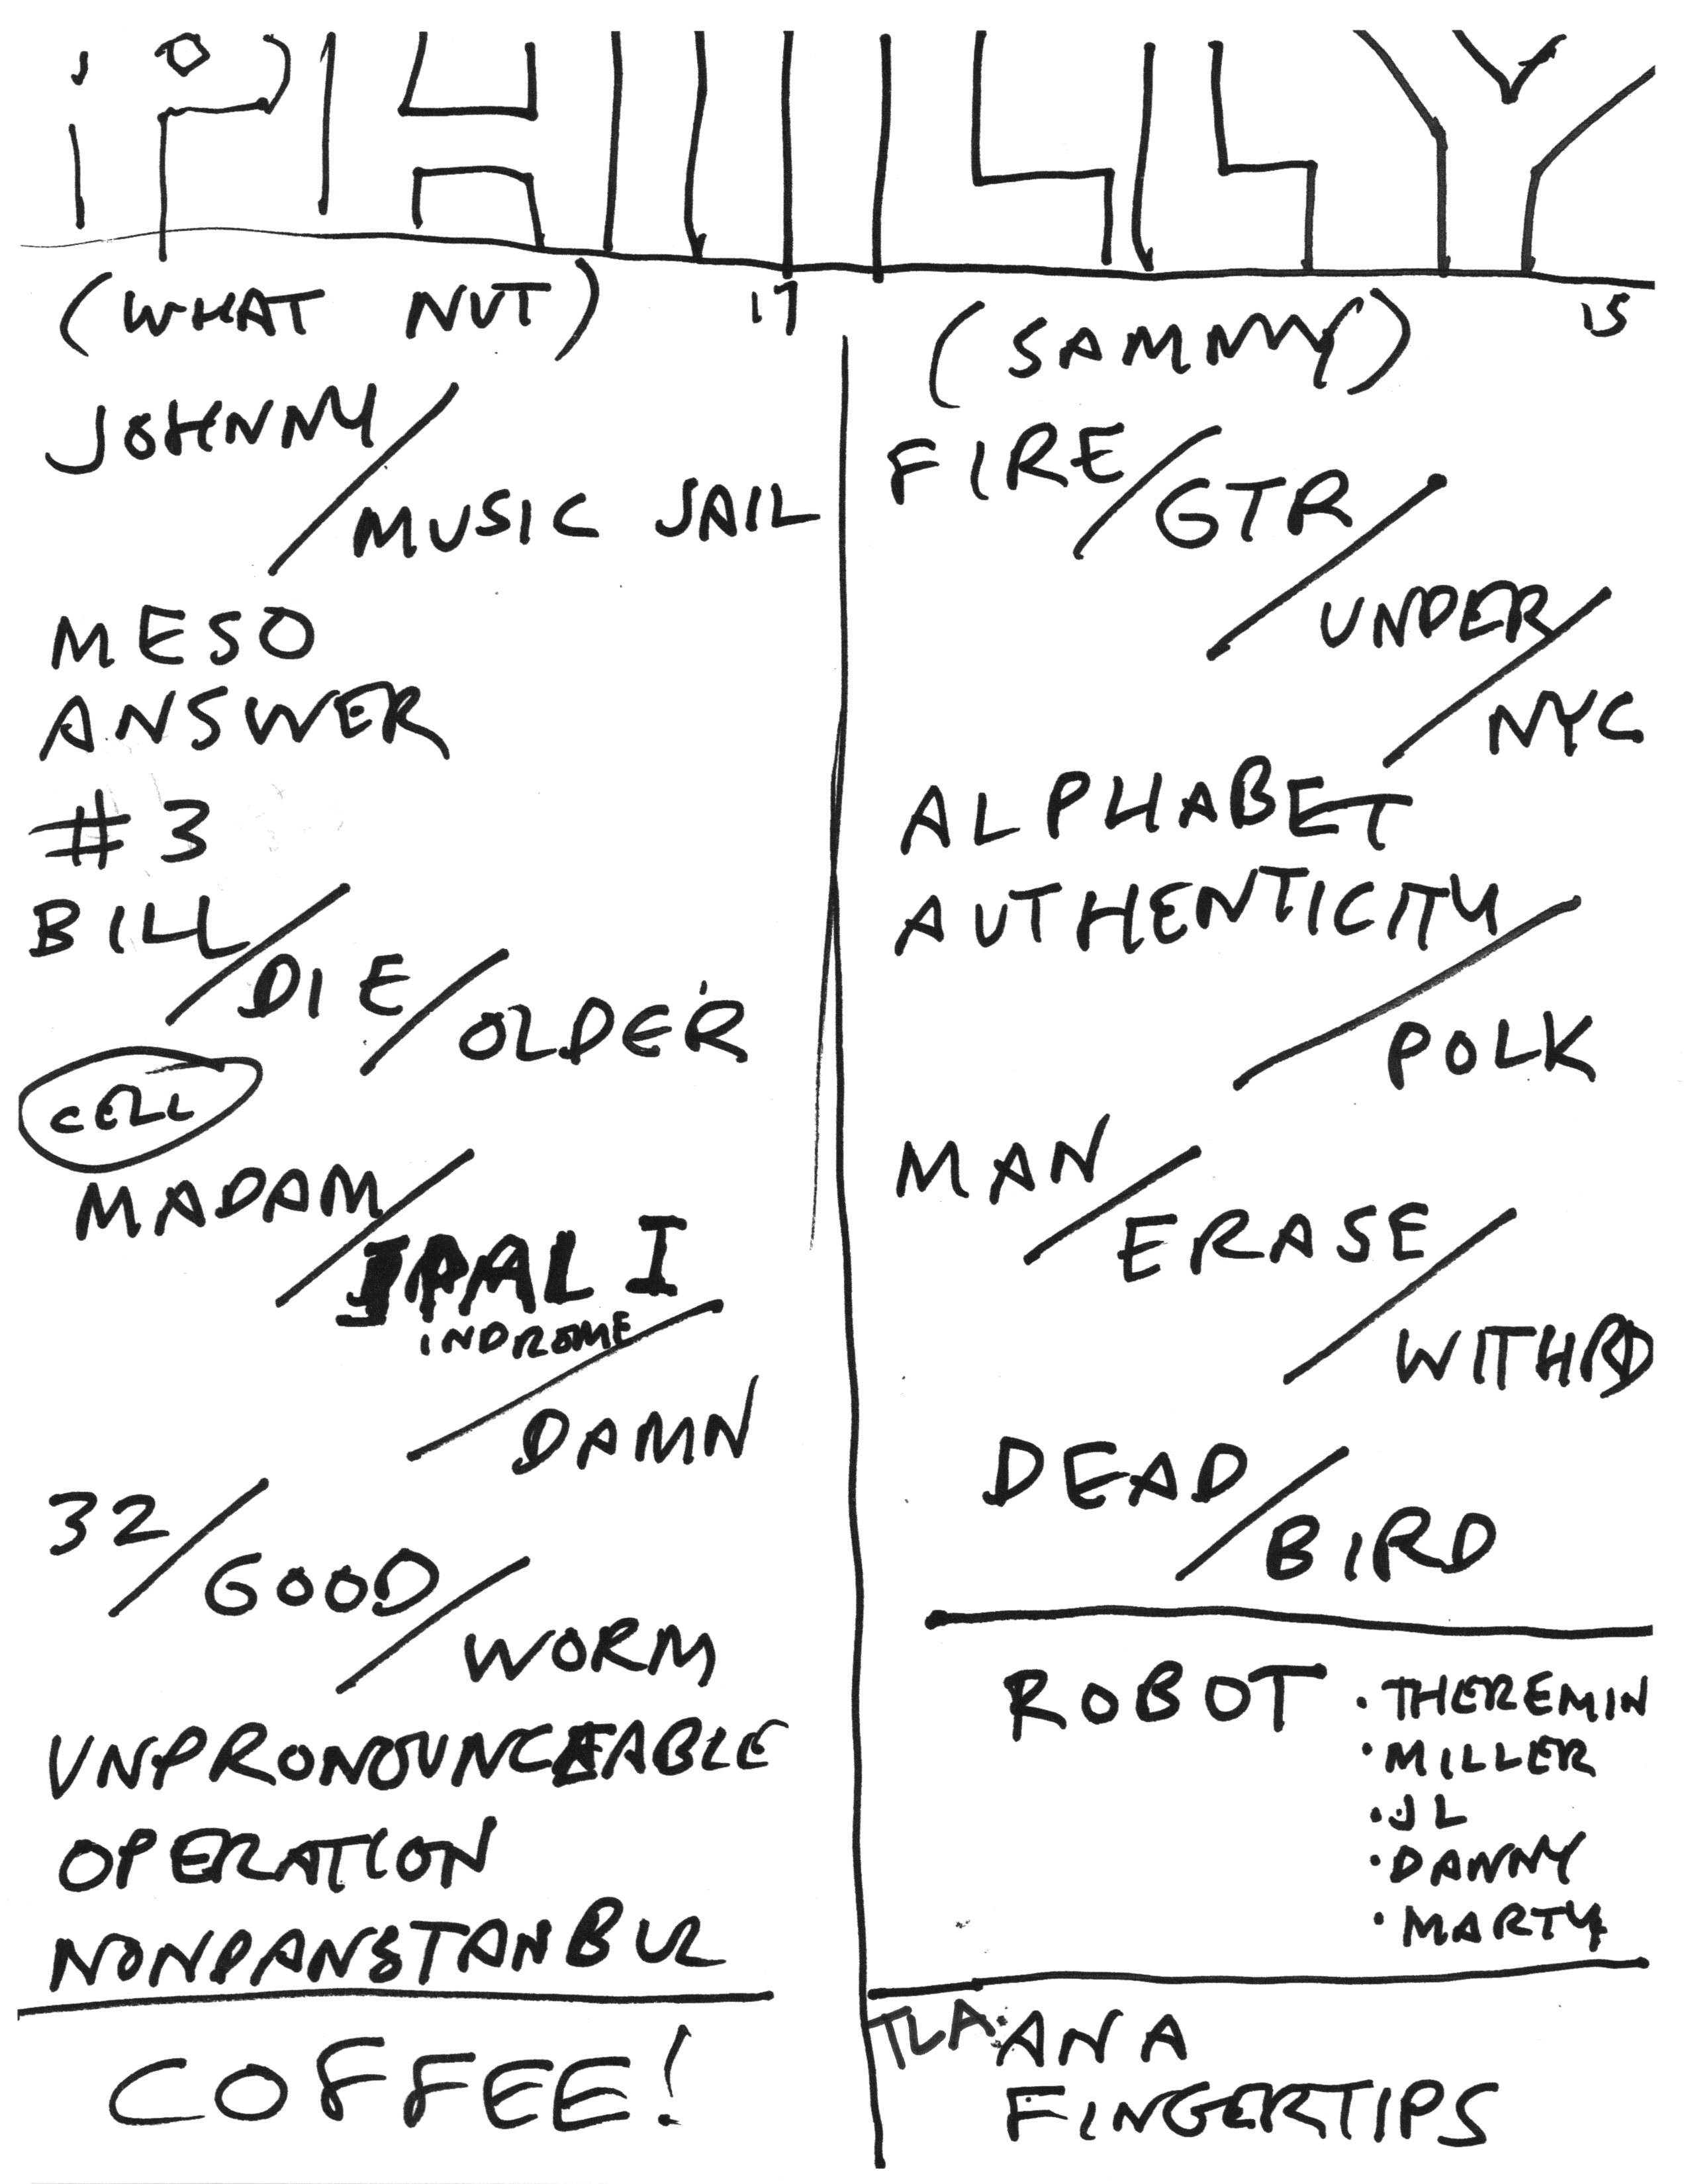 PHILLY
(WHAT NUT) 17
JOHNNY/
MUSIC JAIL
MESO
ANSWER
#3
BILL/
DIE/
OLDER
CELL
MADAM/
PAL I
INDROME/
DAMN
32/
GOOD/
WORM
UNPRONOUNCEABLE
OPERATION
NONPANSTANBUL
COFFEE!
(SAMMY) 15
FIRE/
GTR/
UNDER/
NYC
ALPHABET
AUTHENTICITY/
POLK
MAN/
ERASE/
WITHRD
DEAD/
BIRD
ROBOT • THEREMIN
• MILLER
• JL
• DANNY
• MARTY
TLA: ANA
FINGERTIPS